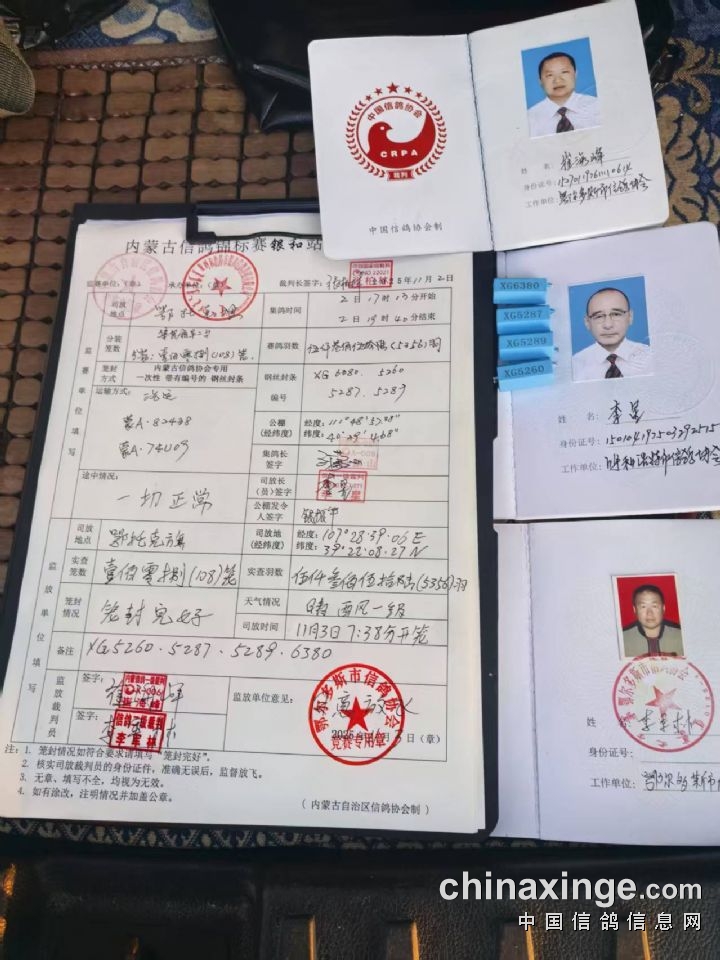 内蒙古信鸽锦标赛银和站
监赛单位:(章)
承办单位:(章)
裁判长签字:
2025年11月2日
司放地点
集鸽时间
2日17时13分开始
2日19时40分结束
分装笼数
(108)笼
赛鸽羽数
(5356)羽
笼封方式
内蒙古信鸽协会专用
一次性 带有编号的 钢丝封条
钢丝封条
编号
XG 6080. 5260
5287. 5289
监赛单位填写
运输方式:
蒙A·82438
蒙A·74U09
公棚
(经纬度)
经度:111°48′37.48″
纬度:40°29′4.68″
集鸽长
签字
途中情况:
一切正常
司放长
(员)签字
公棚发令
人签字
司放地点
鄂托克旗
司放地
(经纬度)
经度:107°28.39.06 E
纬度:39°22.08.27 N
实查笼数
壹佰零捌(108)笼
实查羽数
伍仟叁佰伍拾陆(5356)羽
笼封情况
笼封完好
天气情况
晴 西风一级
司放时间
11月3日7:38分开笼
监放单位填写
备注
XG5260.5287.5289.6380
监放裁判员
签字:
签字:
信鸽一级裁判
李军林
监放单位意见:
同意放飞
鄂尔多斯市信鸽协会
竞赛专用章
2025年11月3日(章)
注:1. 笼封情况如符合要求请填写“笼封完好”。
2. 核实司放裁判员的身份证件,准确无误后,监督放飞。
3. 无章、填写不全,均视为无效。
4. 如有涂改,注明情况并加盖公章。
(内蒙古自治区信鸽协会制)
中国信鸽协会
CRPA
裁判
中国信鸽协会制
姓名:崔海峰
身份证号:
工作单位:鄂尔多斯市信鸽协会
XG6380
XG5287
XG5289
XG5260
姓名:李星
身份证号:
工作单位:呼和浩特市信鸽协会
姓名:李军林
身份证号:
工作单位:鄂尔多斯市
chinaxinge.com
中国信鸽信息网